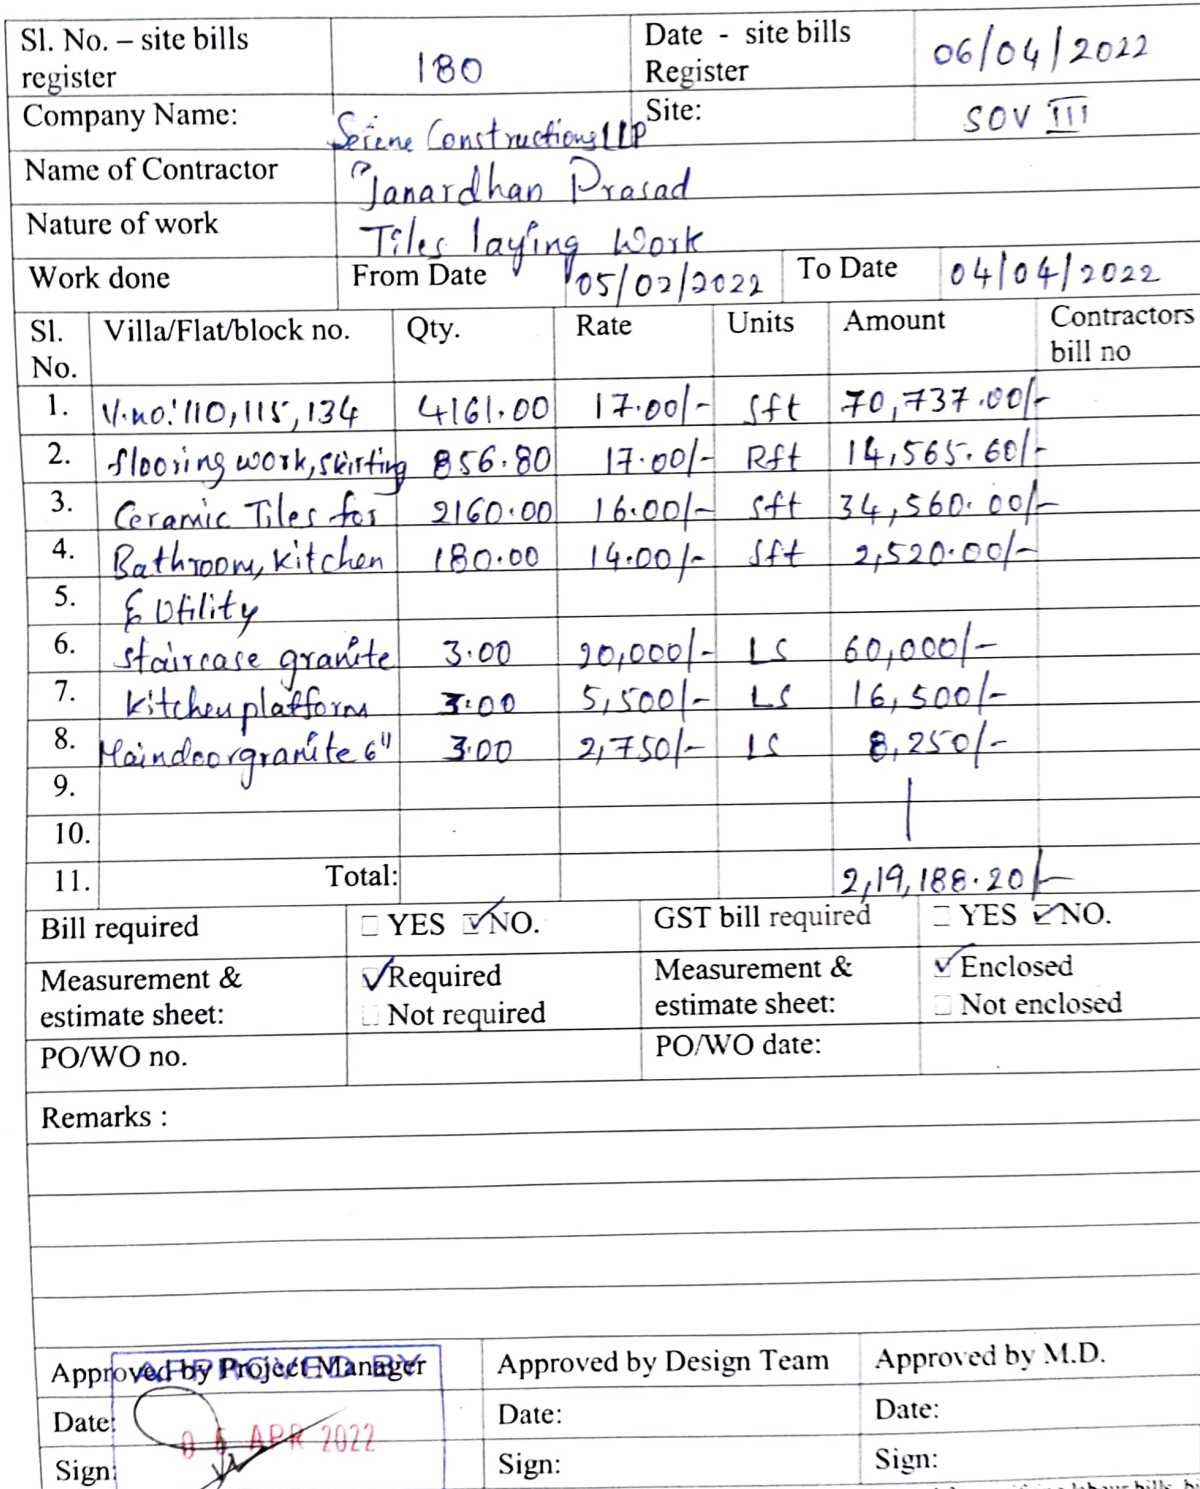 Sl. No. – site bills register 180 Date - site bills Register 06/04/2022
Company Name: Serene Constructions LLP Site: SOV III
Name of Contractor Janardhan Prasad
Nature of work Tiles laying Work
Work done From Date 05/02/2022 To Date 04/04/2022
Sl. No. Villa/Flat/block no. Qty. Rate Units Amount Contractors bill no
1. V.no: 110, 115, 134 4161.00 17.00/- Sft 70,737.00/-
2. flooring work, skirting 856.80 17.00/- Rft 14,565.60/-
3. Ceramic Tiles for 2160.00 16.00/- Sft 34,560.00/-
4. Bathroom, kitchen 180.00 14.00/- Sft 2,520.00/-
5. & Utility
6. Staircase granite 3.00 20,000/- LS 60,000/-
7. kitchen platform 3.00 5,500/- LS 16,500/-
8. Maindoor granite 6" 3.00 2,750/- LS 8,250/-
9.
10.
11. Total: 2,19,188.20/-
Bill required YES NO. GST bill required YES NO.
Measurement & estimate sheet: Required Measurement & estimate sheet: Enclosed
Not required Not enclosed
PO/WO no. PO/WO date:
Remarks :
Approved by Project Manager Approved by Design Team Approved by M.D.
APPROVED BY
Date: Date: Date:
APR 2022
Sign: Sign: Sign: